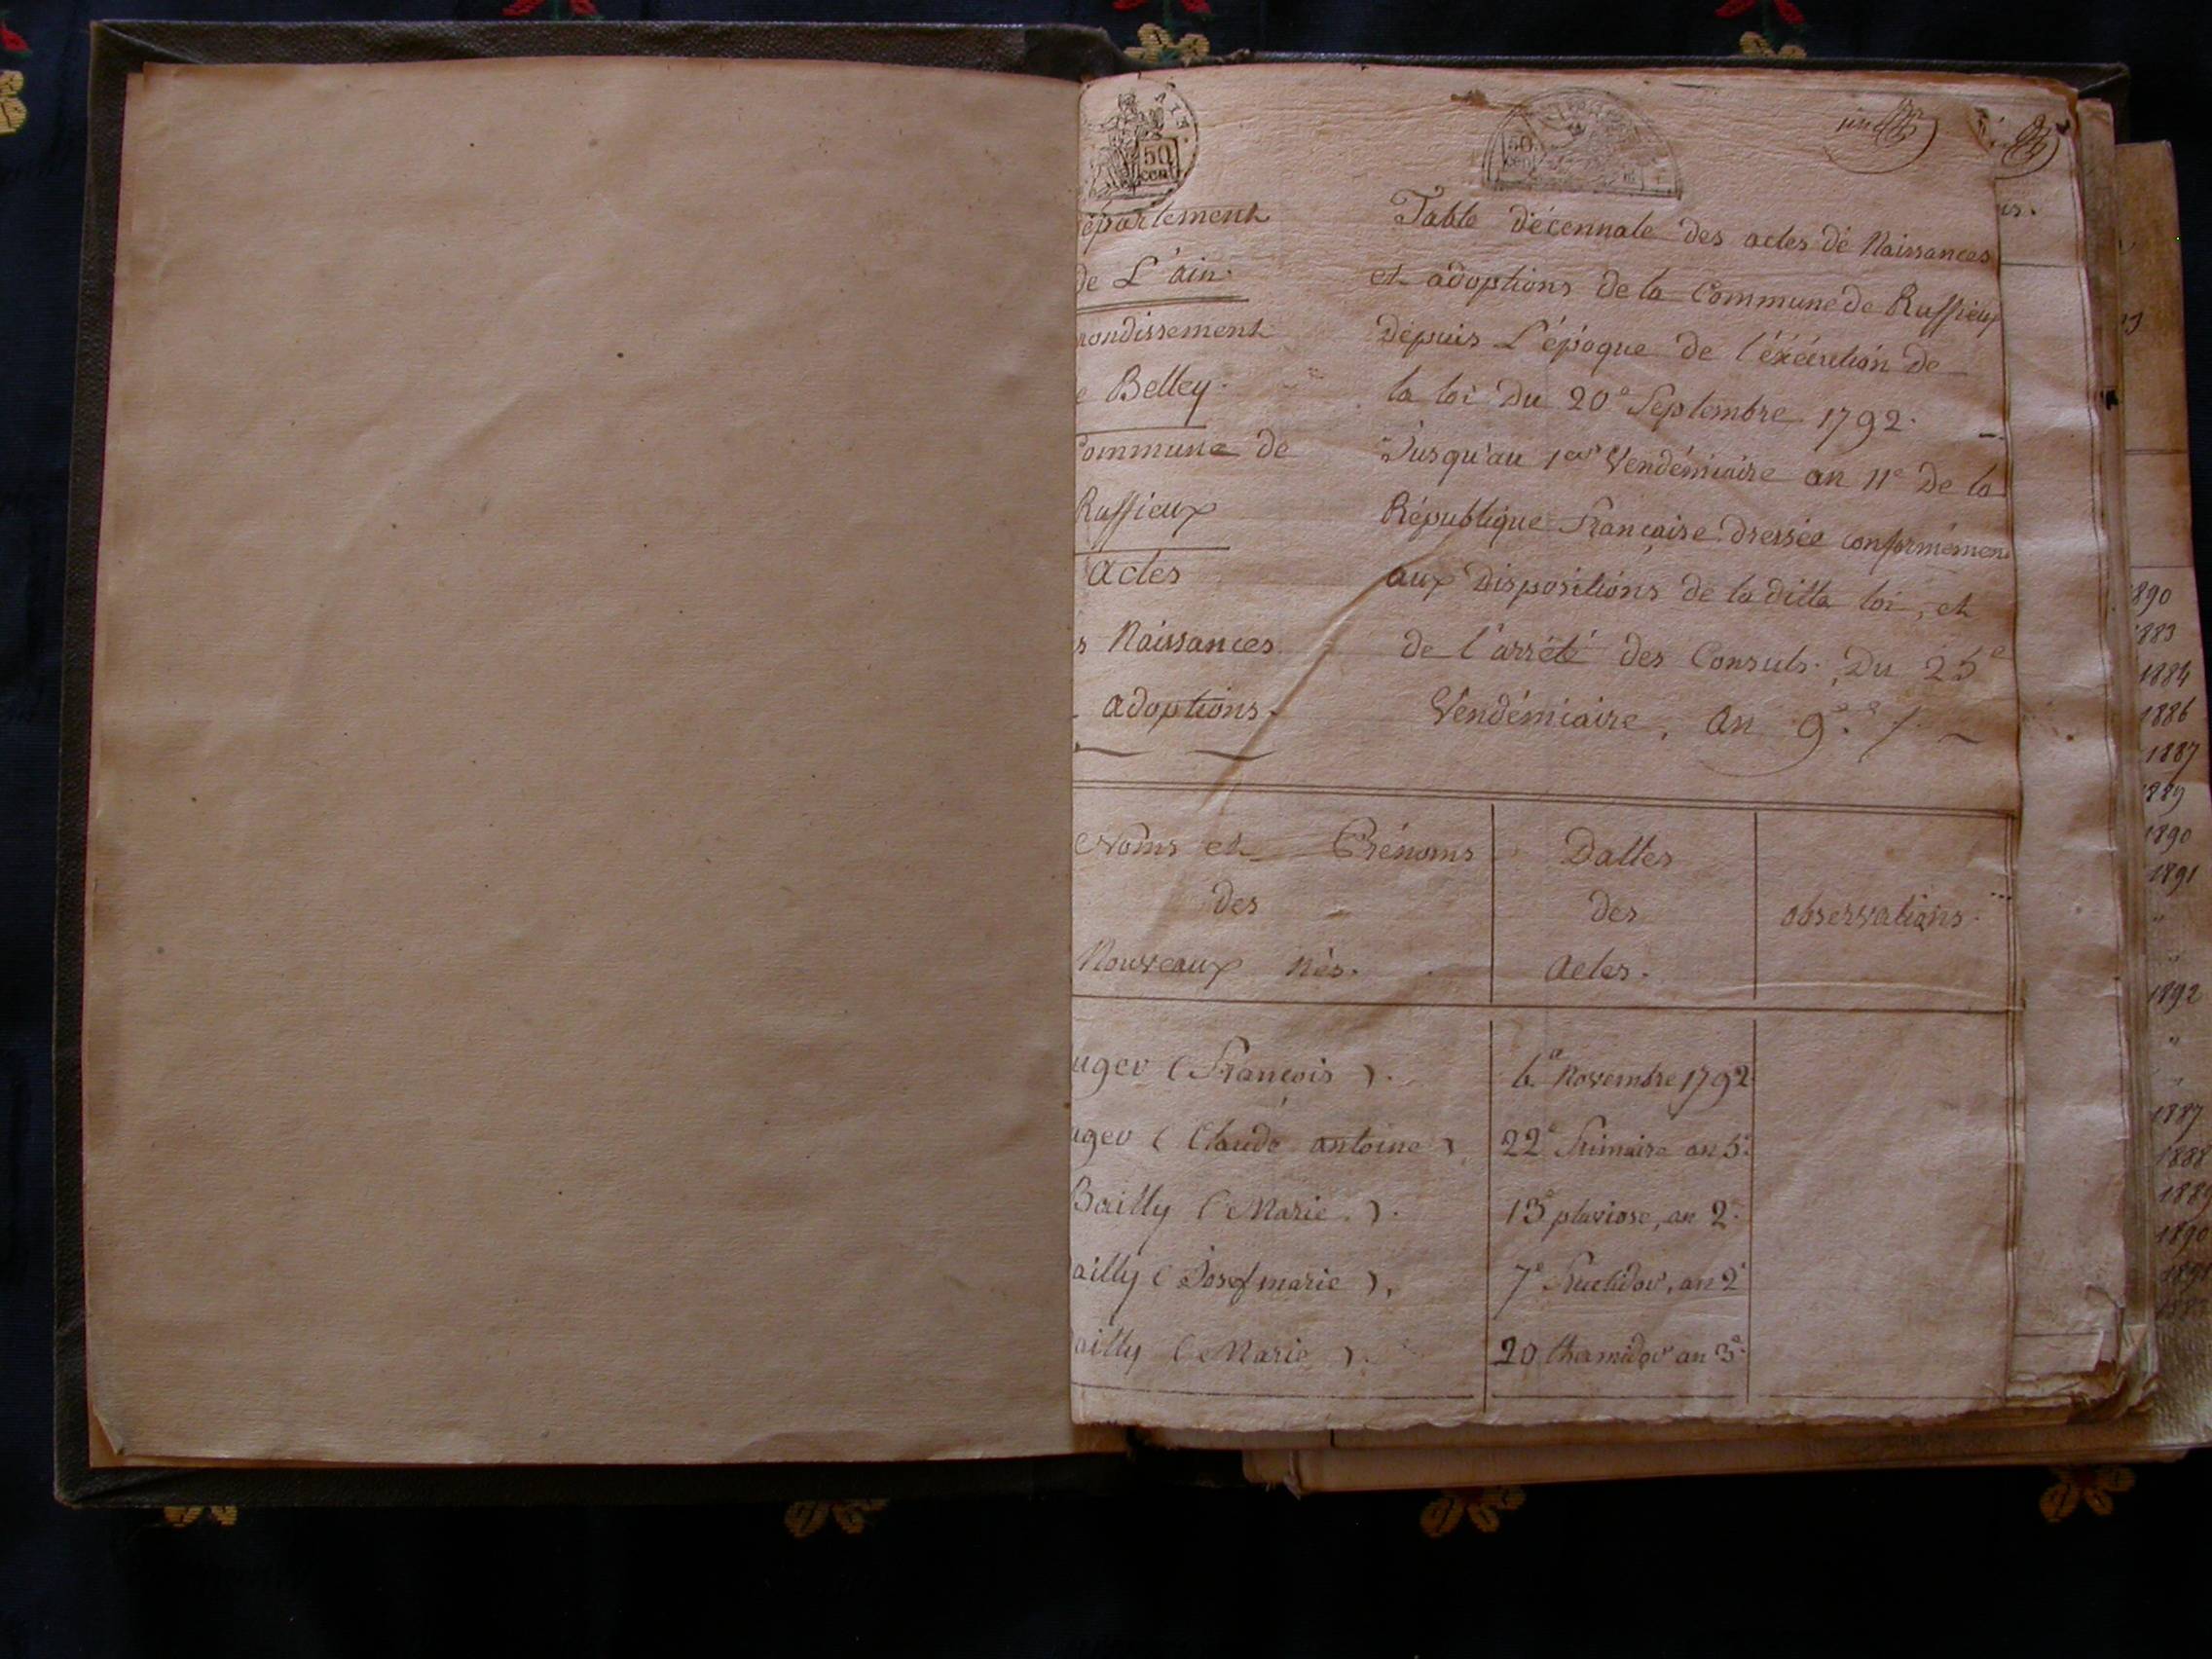 50
cen
50
cen
épartement
de L'ain.
rondissement
e Belley.
Commune de
Ruffieux
actes
s Naissances
adoptions.
Table décennale des actes de Naissances
et adoptions de la Commune de Ruffieux
dépuis L'époque de l'éxécution de
la loi du 20e Septembre 1792.
Jusqu'au 1er Vendémiaire an 11e de la
République Française dressée conformémen
aux dispositions de la ditte loi, et
de l'arrété des Consuls, du 25e
Vendémiaire, an 9e.
Noms et Prénoms
des
Nouveaux Nés.
Dattes
des
actes.
observations.
uger (François).
6e Novembre 1792
uger (Claude antoine)
22e Frimaire an 5e.
Bailly (Marie).
13e pluviose, an 2e.
ailly (Josef marie),
7e Fructidor, an 2e
ailly (Marie).
20 thermidor an 3e.
890
1883
1884
1886
1887
1889
1890
1891
"
"
1892
"
"
1887
1888
1890